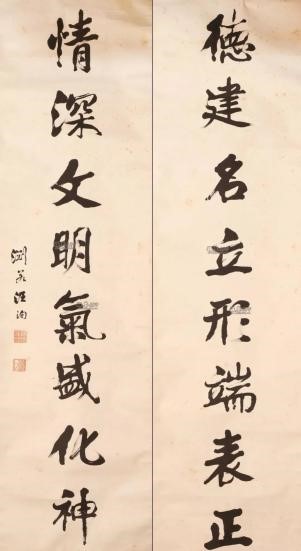 德建名立形端表正
情深文明氣盛化神
淵若汪洵